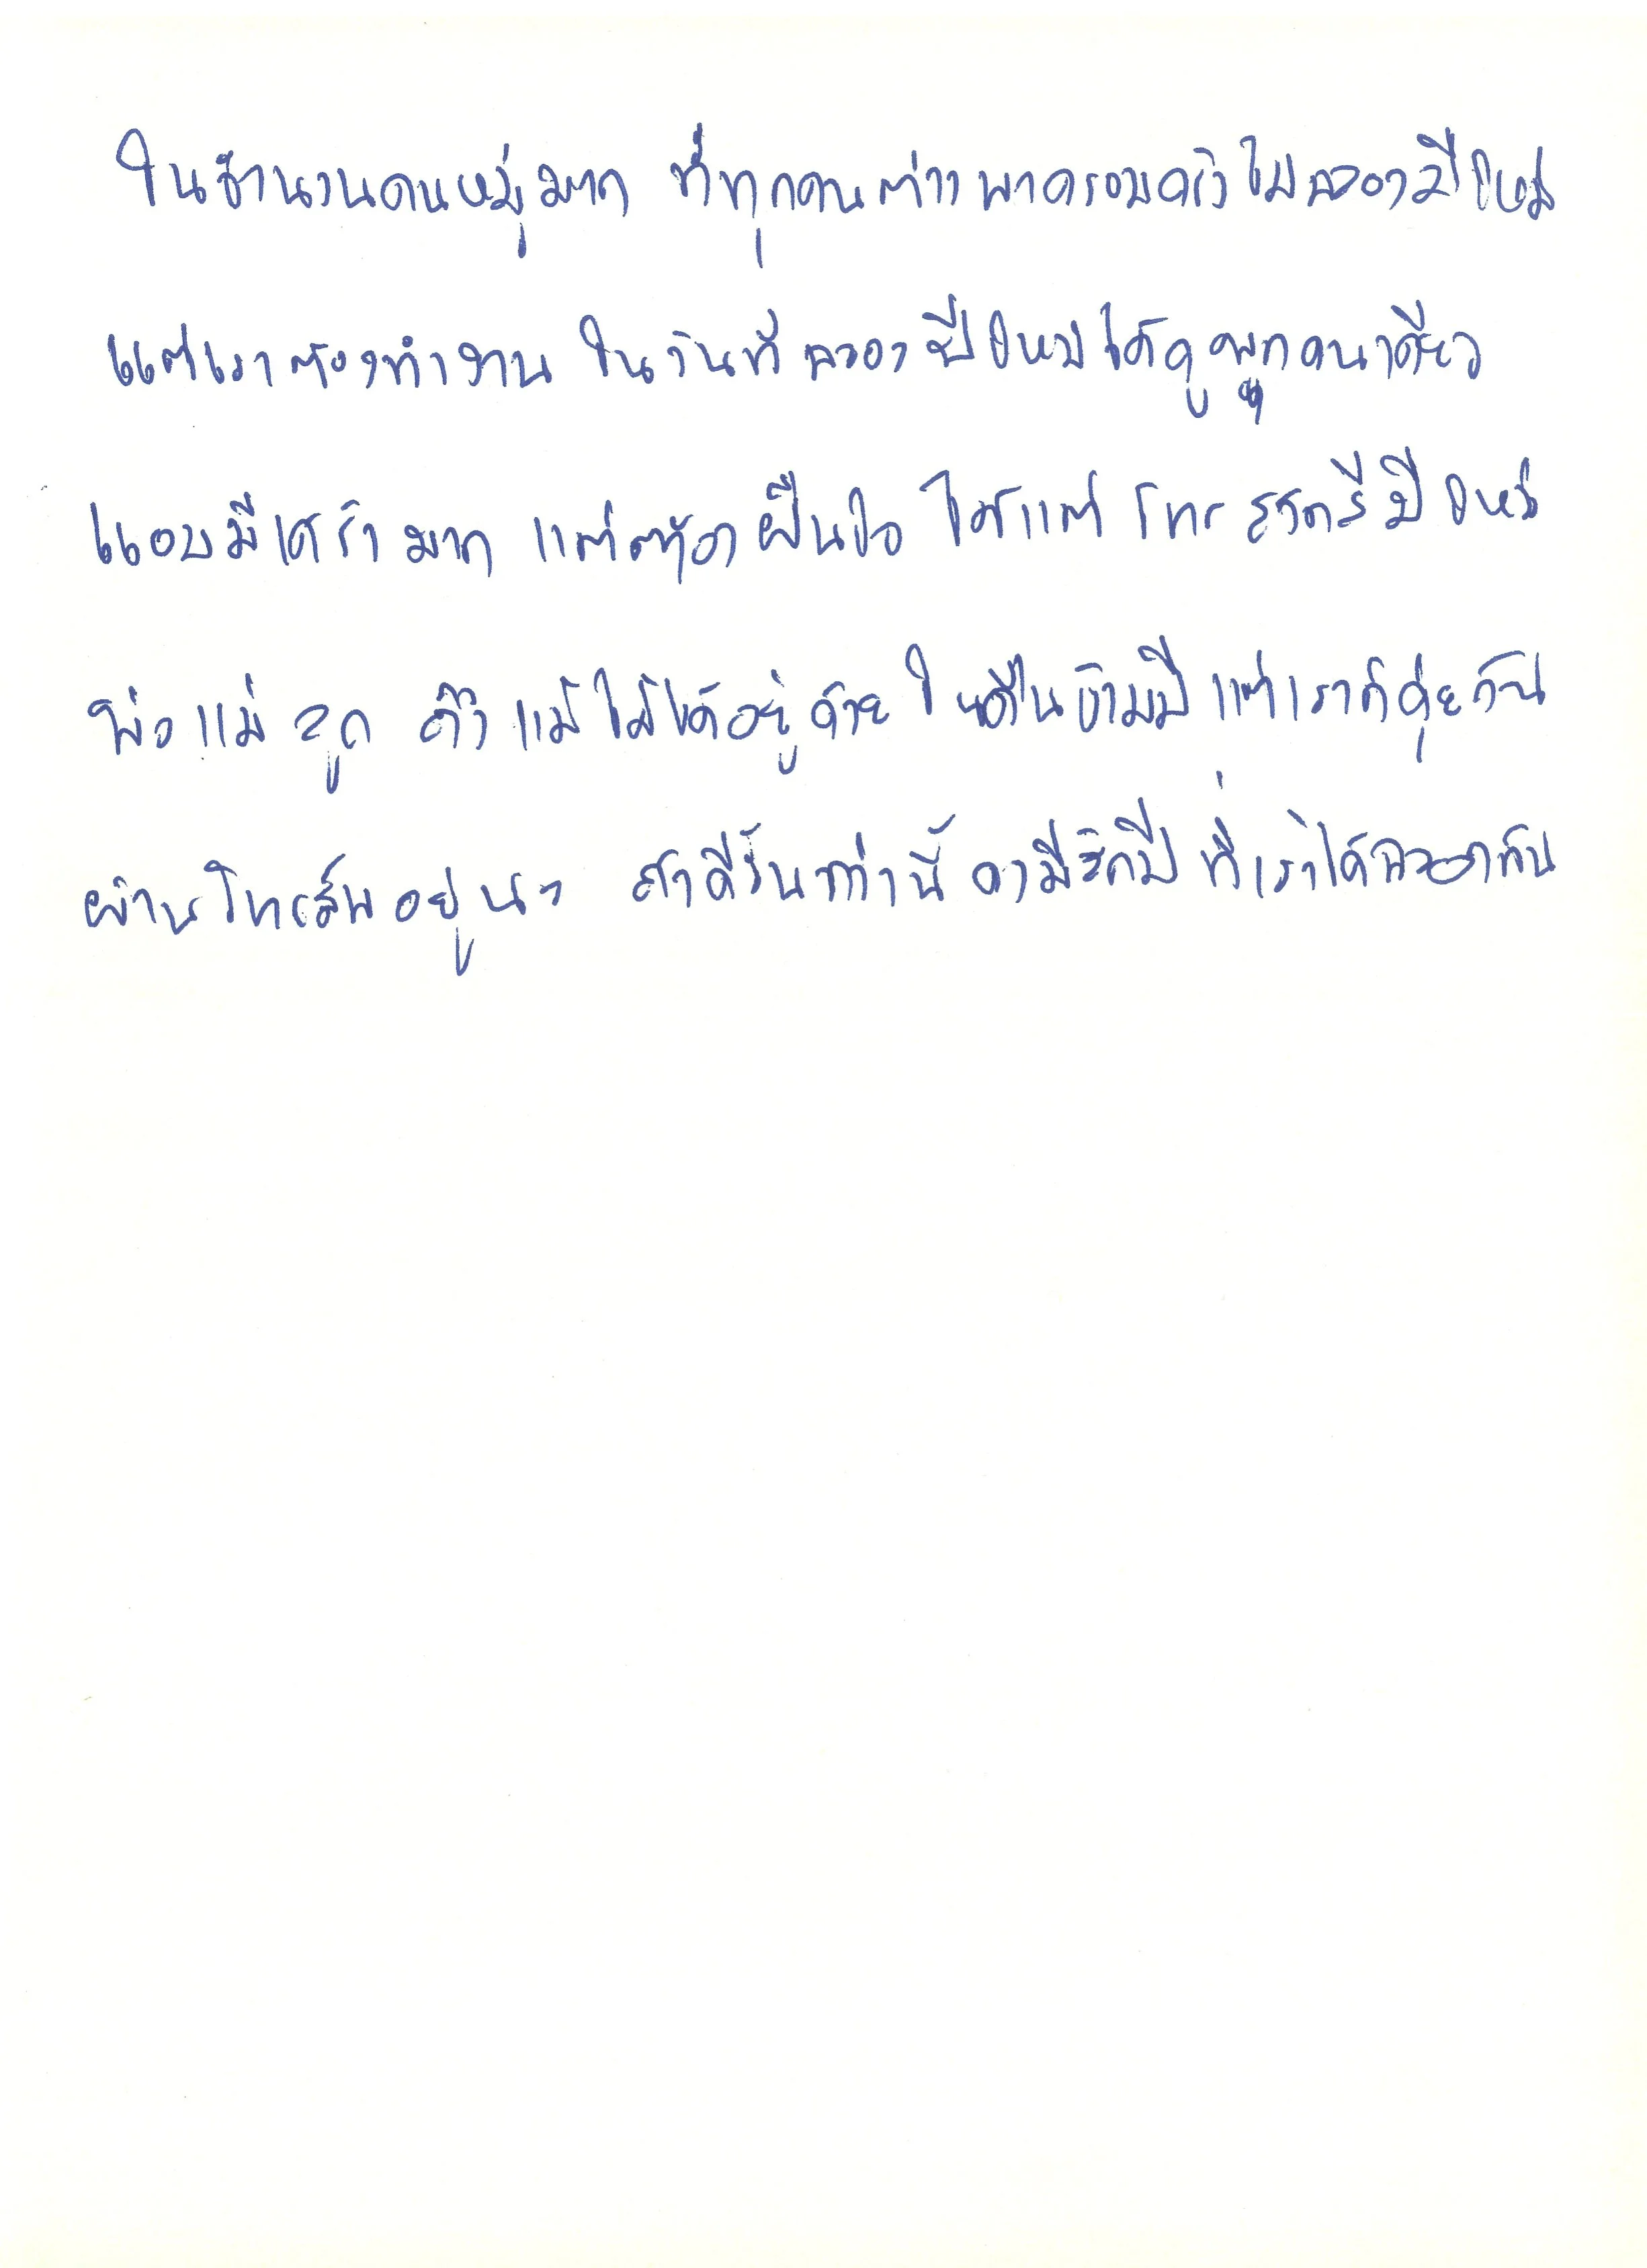 ในจำนวนคนหมู่มาก ที่ทุกคนต่างพาครอบครัวไปฉลองปีใหม่
แต่เราต้องทำงาน ในวันที่ ฉลอง ปีใหม่ได้ดูพลุคนเดียว
แอบมีเศร้า มาก แต่ต้อง ฝืนใจ ได้แต่ โทร สวัสดีปีใหม่
พ่อ แม่ ลูก ถึง แม้ไม่ได้อยู่ด้วย ในคืนข้ามปี แต่เราก็คุยกัน
ผ่านโทรศัพ อยู่นะ ถ้าดีขึ้นกว่านี้ คงมีสักปี ที่เราได้ฉลองกัน